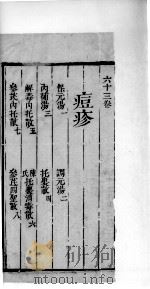 六十三卷
痘疹
保元湯一　調元湯二
内補湯三　托裏散四
解毒内托散五　陳氏托裏消毒散六
參芪内托散七　參芪四聖散八